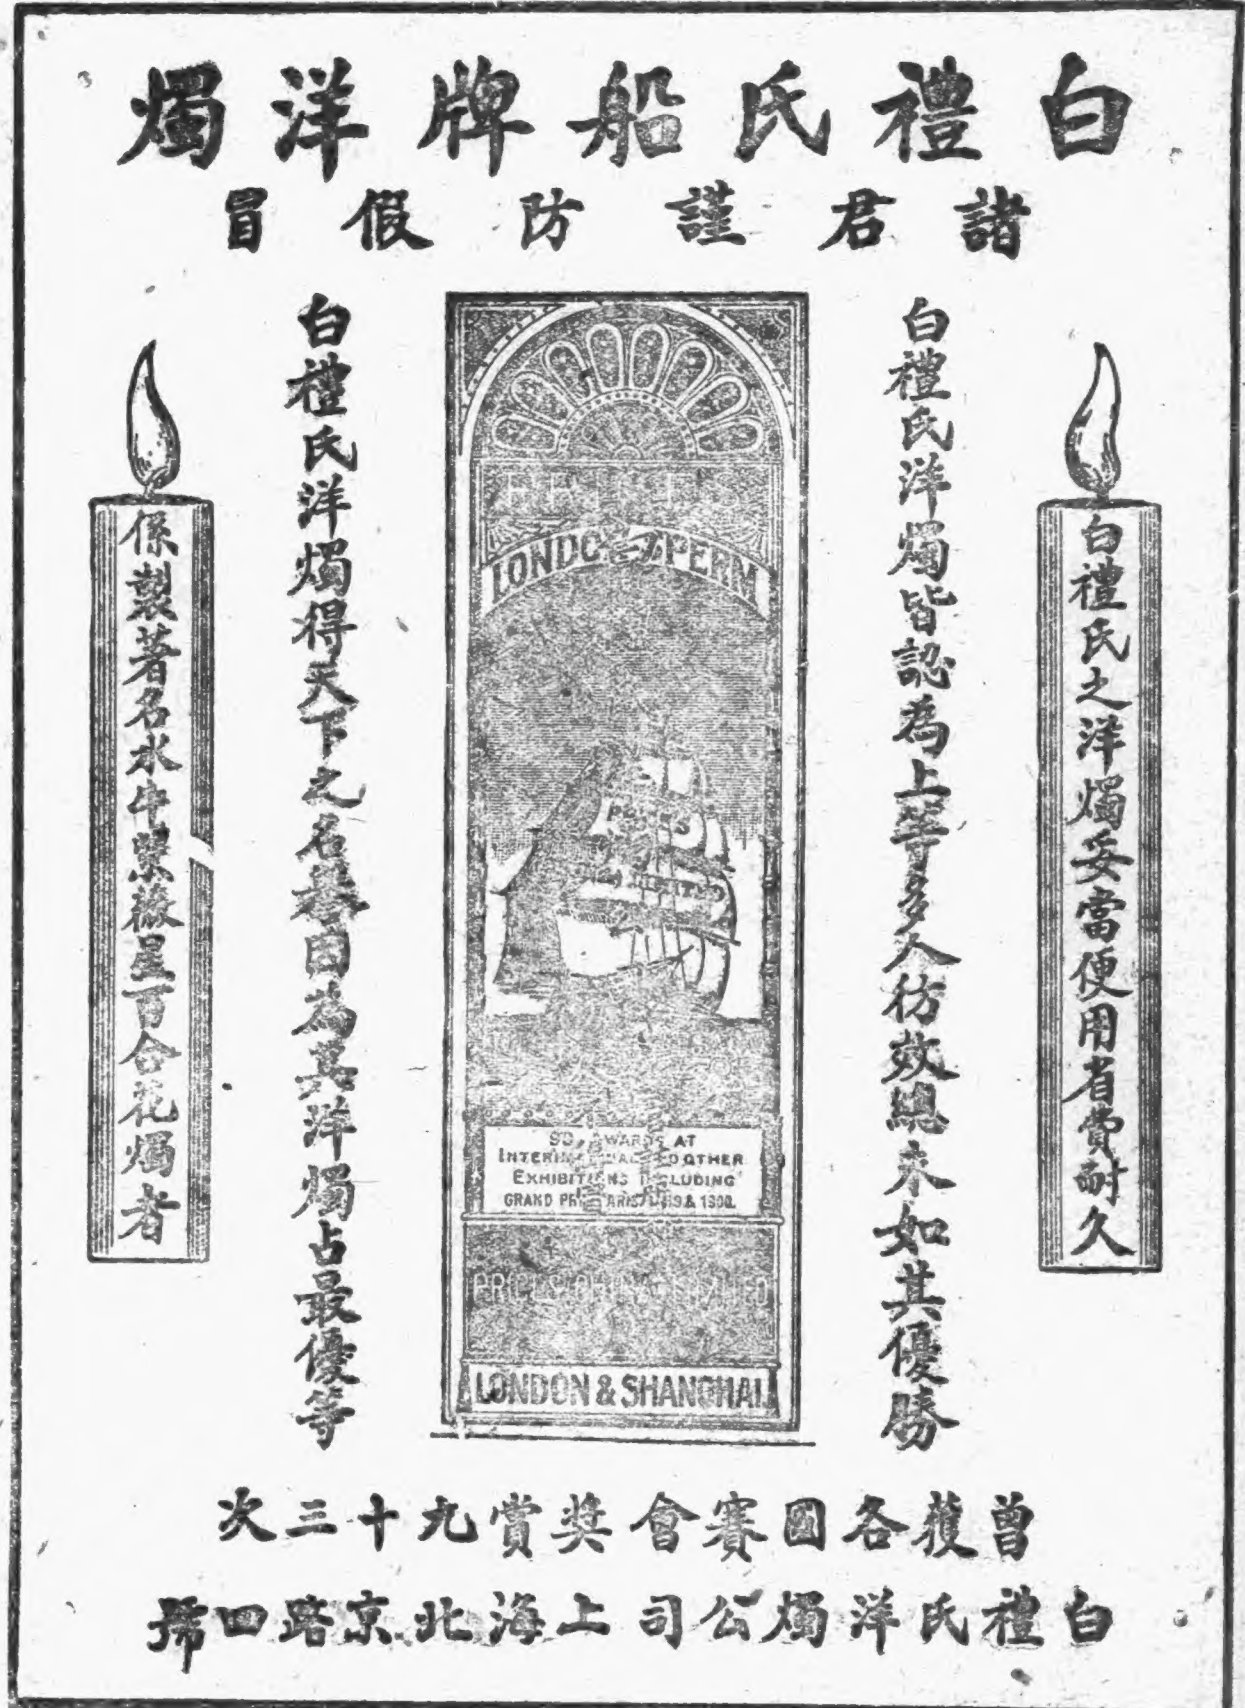 白禮氏船牌洋燭
諸君謹防假冒
白禮氏之洋燭妥當便用省費耐久
白禮氏洋燭皆認為上等多人彷效總未如其優勝
PRICE'S
LONDON SPERM
PRICE'S
LIMITED
AWARDS AT
INTERNATIONAL AND OTHER
EXHIBITIONS INCLUDING
GRAND PRIX PARIS & 1900.
PRICE'S CHINA LIMITED
LONDON & SHANGHAI
白禮氏洋燭得天下之名譽因為其洋燭占最優等
係製著名水牛紫薇星百合花燭者
曾獲各國賽會獎賞九十三次
白禮氏洋燭公司上海北京路四號